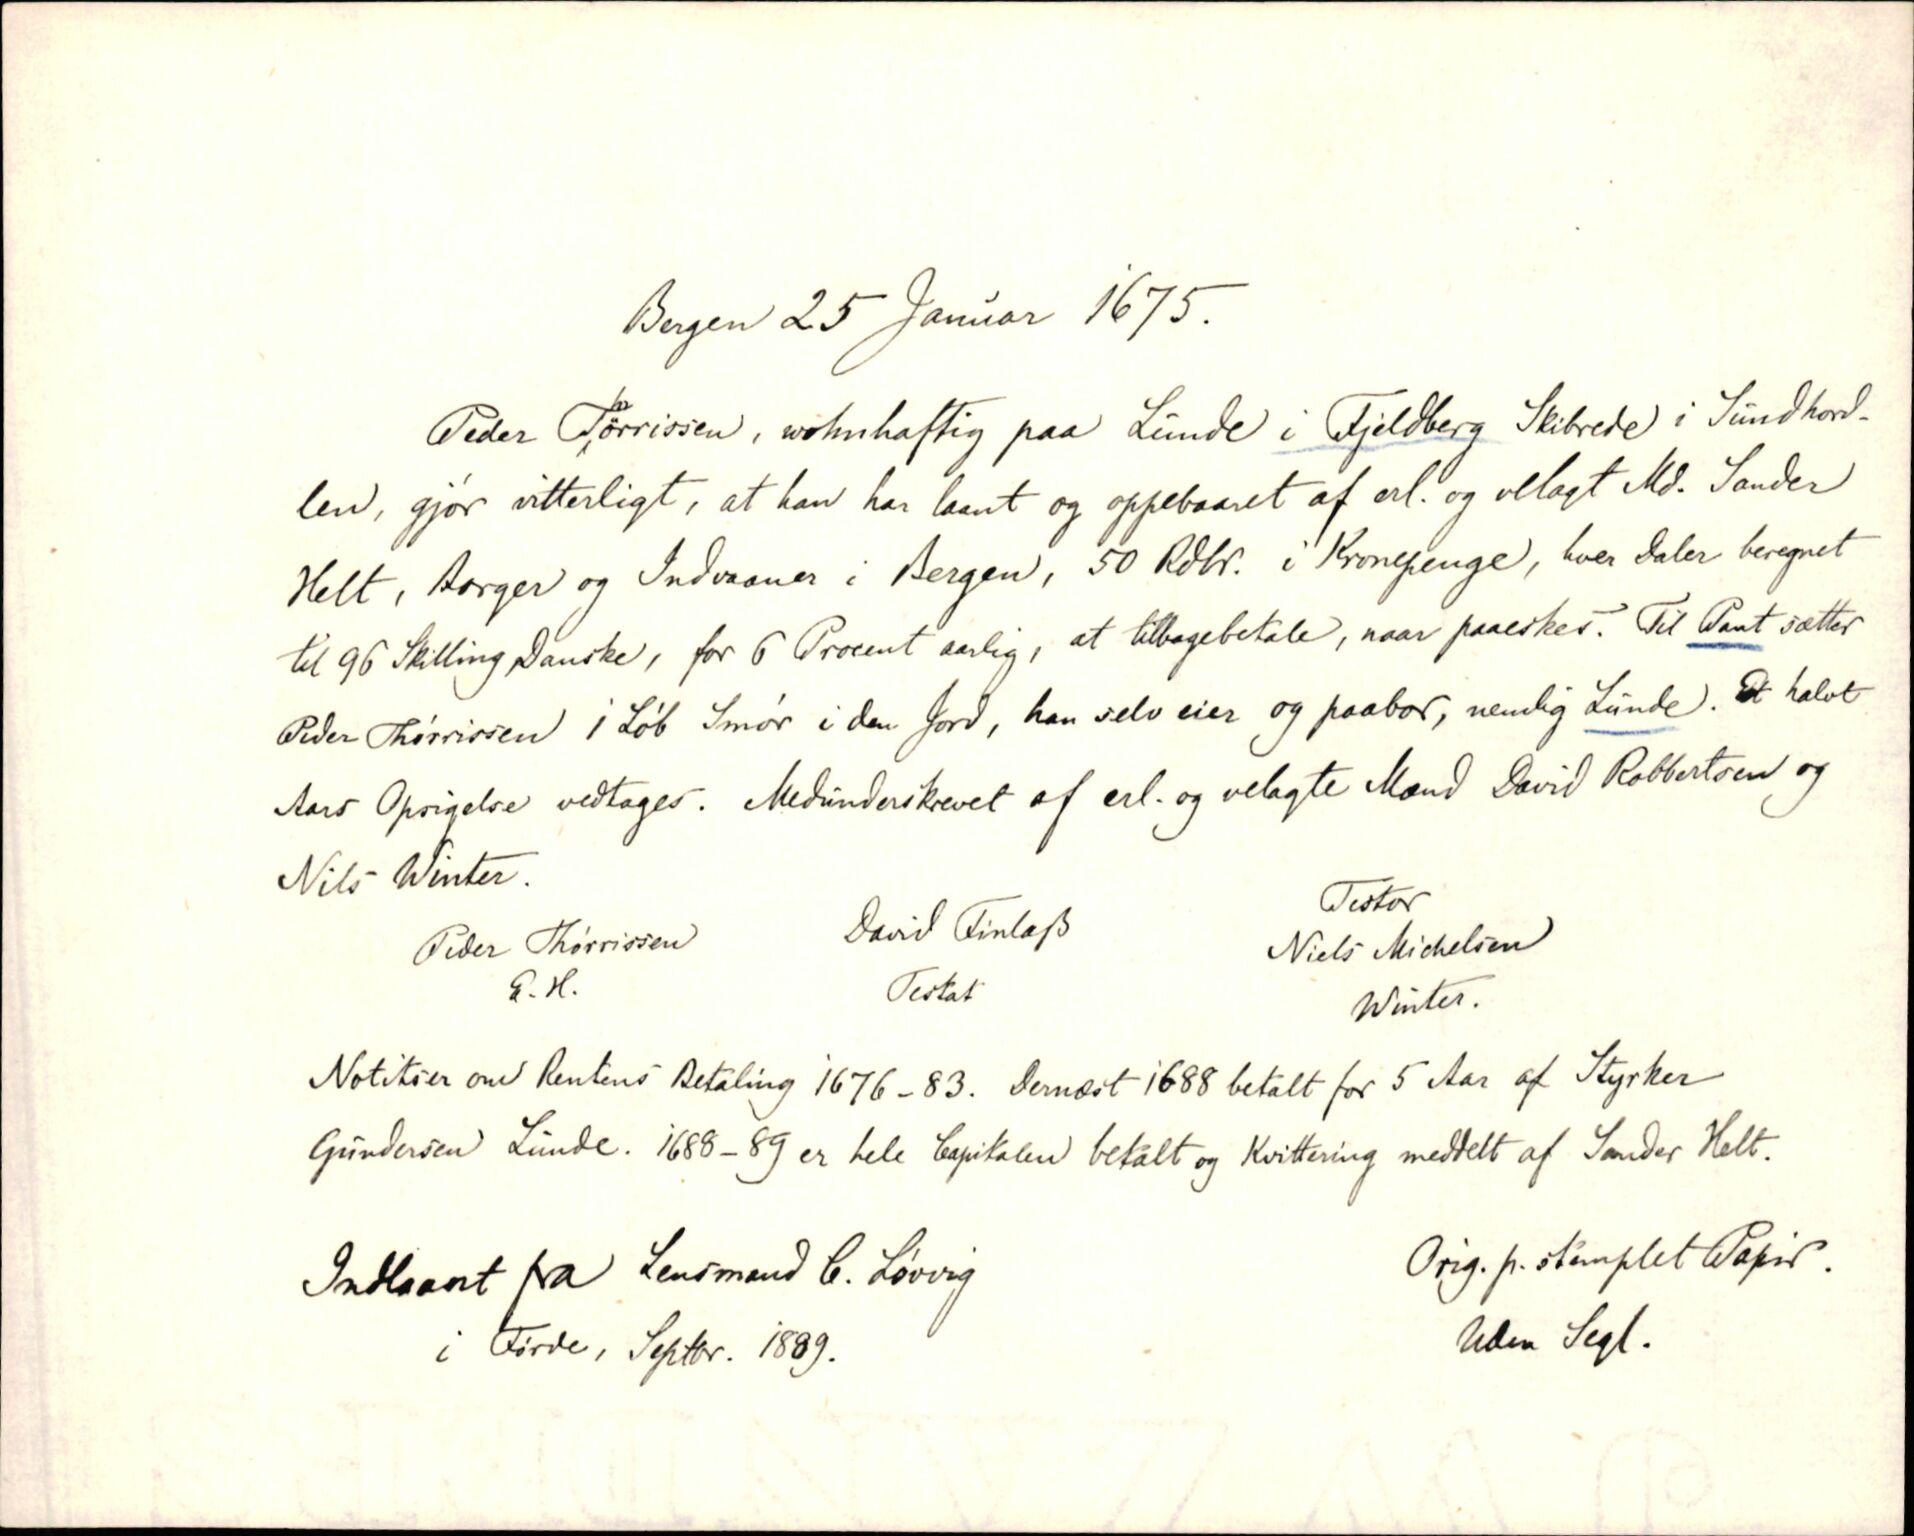 Bergen 25 Januar 1675.
Peder Thörrissen, wohnhaftig paa Lunde i Fjeldberg Skibrede i Sundhord-
len, gjør vitterligt, at han har laant og oppebaaret af erl. og velagt Md. Sander
Helt, Borger og Indvaaner i Bergen, 50 Rdlr. i Kronepenge, hver Daler beregnet
til 96 Skilling Danske, for 6 Procent aarlig, at tilbagebetale, naar paaeskes. Til Pant sætter
Peder Thørrissen 1 Løb Smør i den Jord, han selv eier og paabor, nemlig Lunde. Et halvt
Aars Opsigelse vedtages. Medunderskrevet af erl. og velagte Mænd David Robbertsen og
Nils Winter.
Peder Thørrissen David Finlaß Testor
E. H. Testat Niels Michelsen
Winter.
Notitser om Rentens Betaling 1676-83. Dernæst 1688 betalt for 5 Aar af Styrker
Gundersen Lunde. 1688-89 er hele Capitalen betalt og Kvittering meddelt af Sander Helt.
Indlaant fra Lensmand C. Løvvig
i Førde, Septbr. 1889.
Orig. p. stemplet Papir.
Uden Segl.